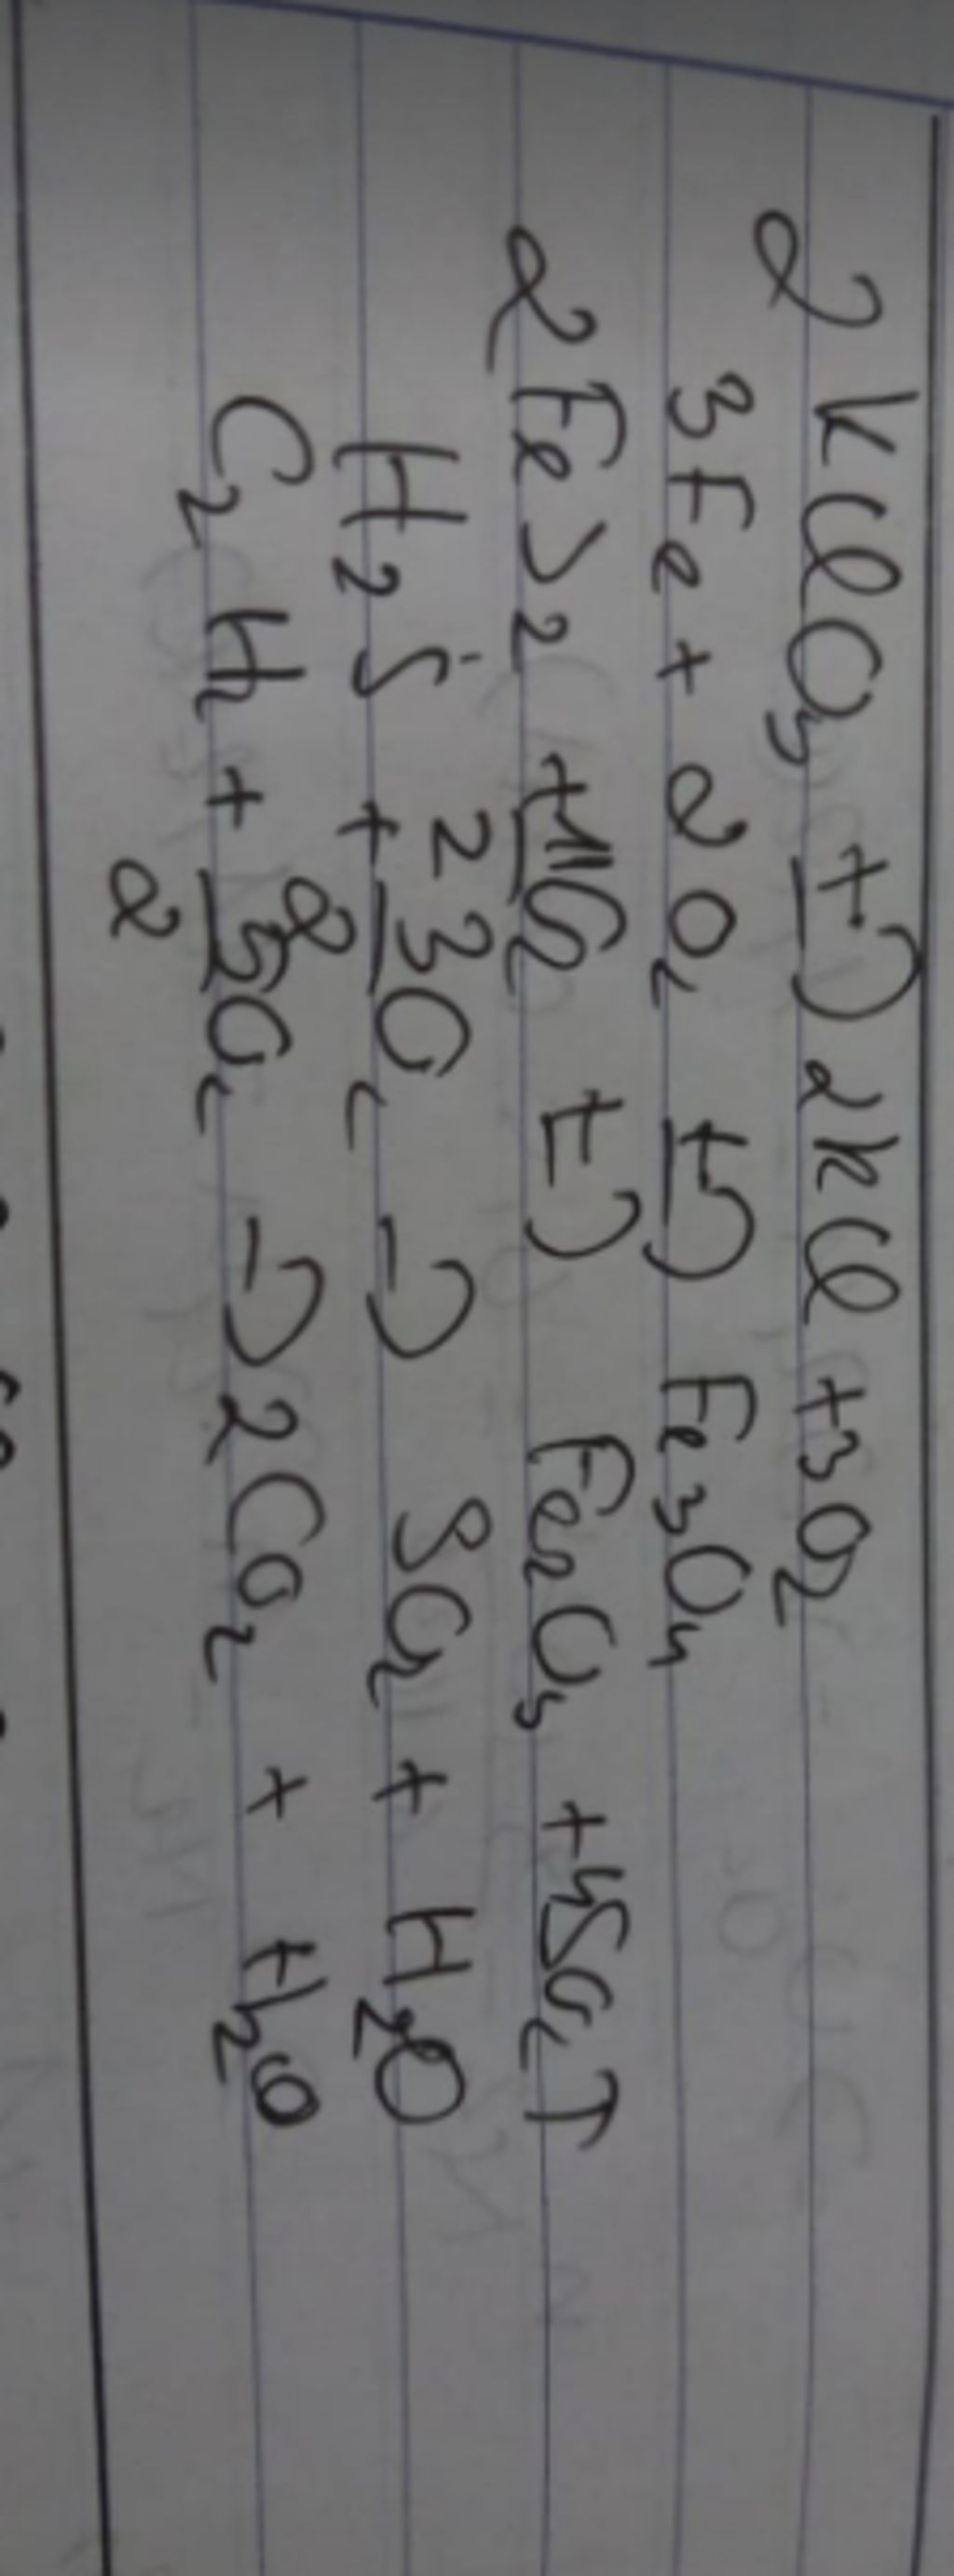 2 KClO3 t→ 2KCl + 3O2
3Fe + 2O2 t→ Fe3O4
2 FeS2 + 11/2 O2 t→ Fe2O3 + 4SO2↑
H2S + 3/2 O2 → SO2 + H2O
C2H2 + 5/2 O2 → 2CO2 + H2O